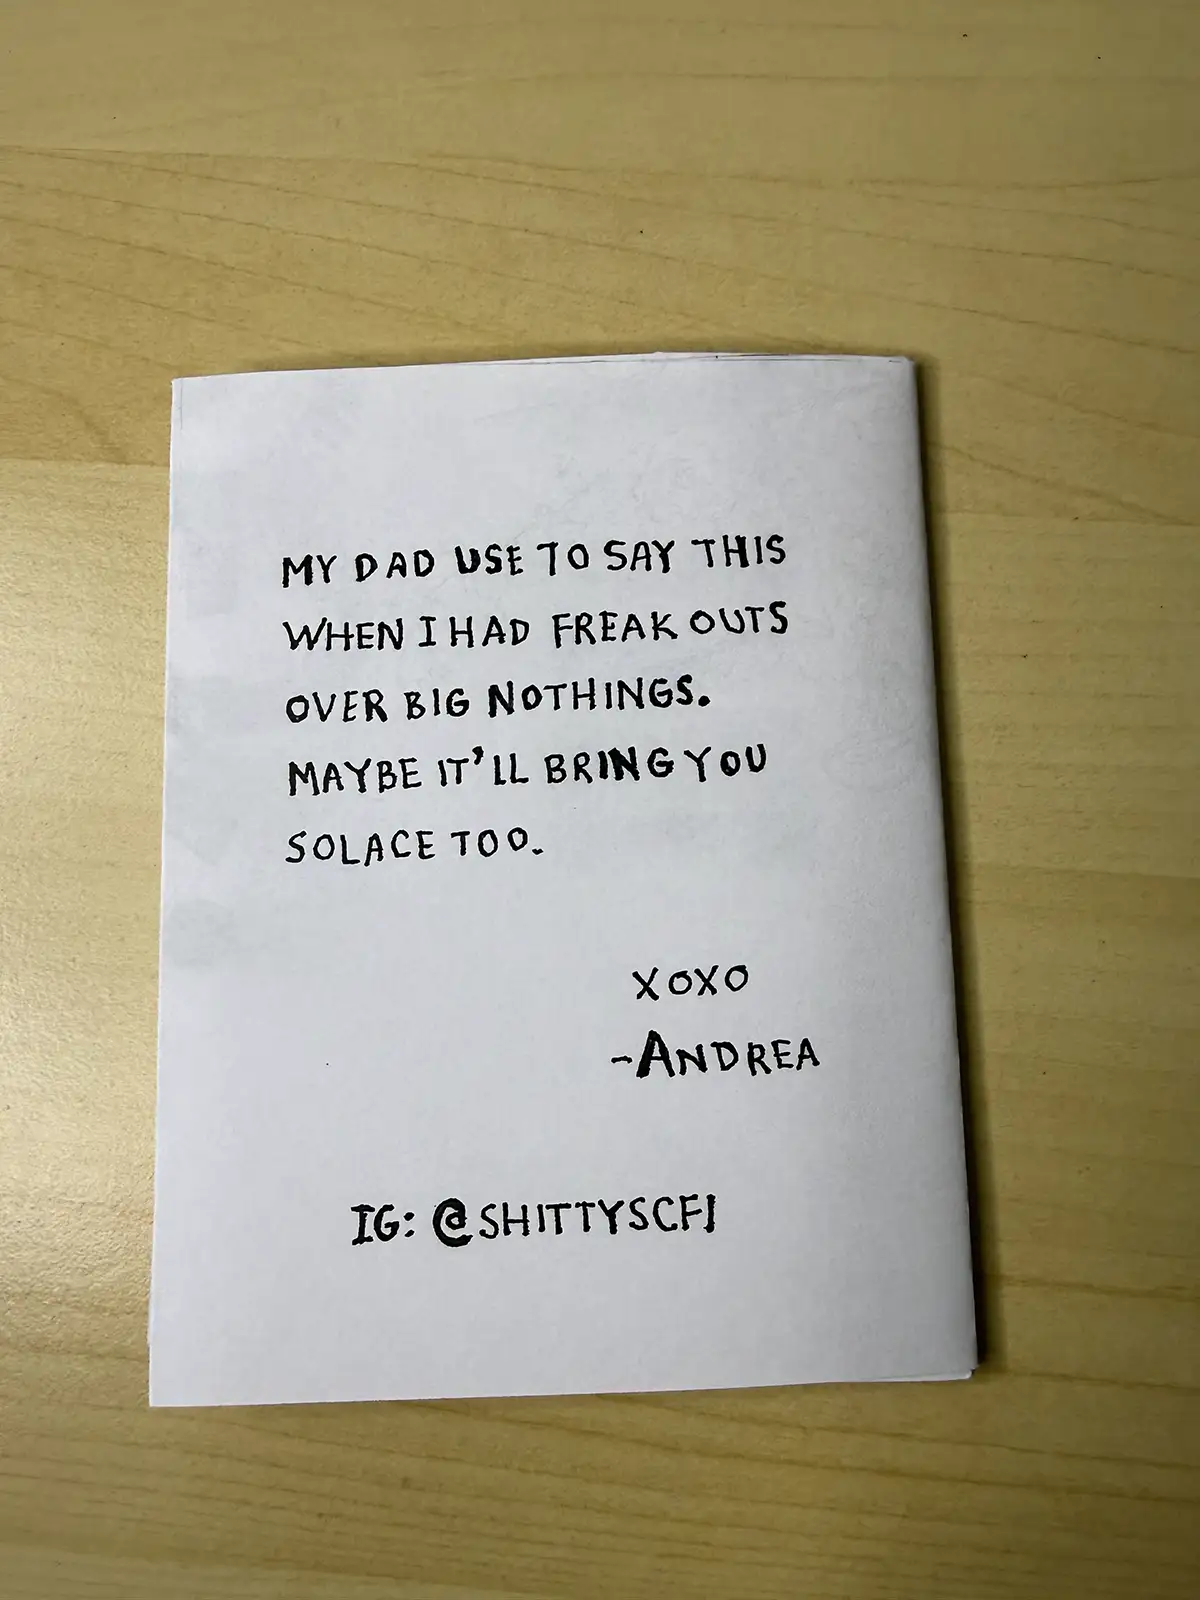 MY DAD USE TO SAY THIS
WHEN I HAD FREAK OUTS
OVER BIG NOTHINGS.
MAYBE IT'LL BRING YOU
SOLACE TOO.
XOXO
-ANDREA
IG: @SHITTYSCFI